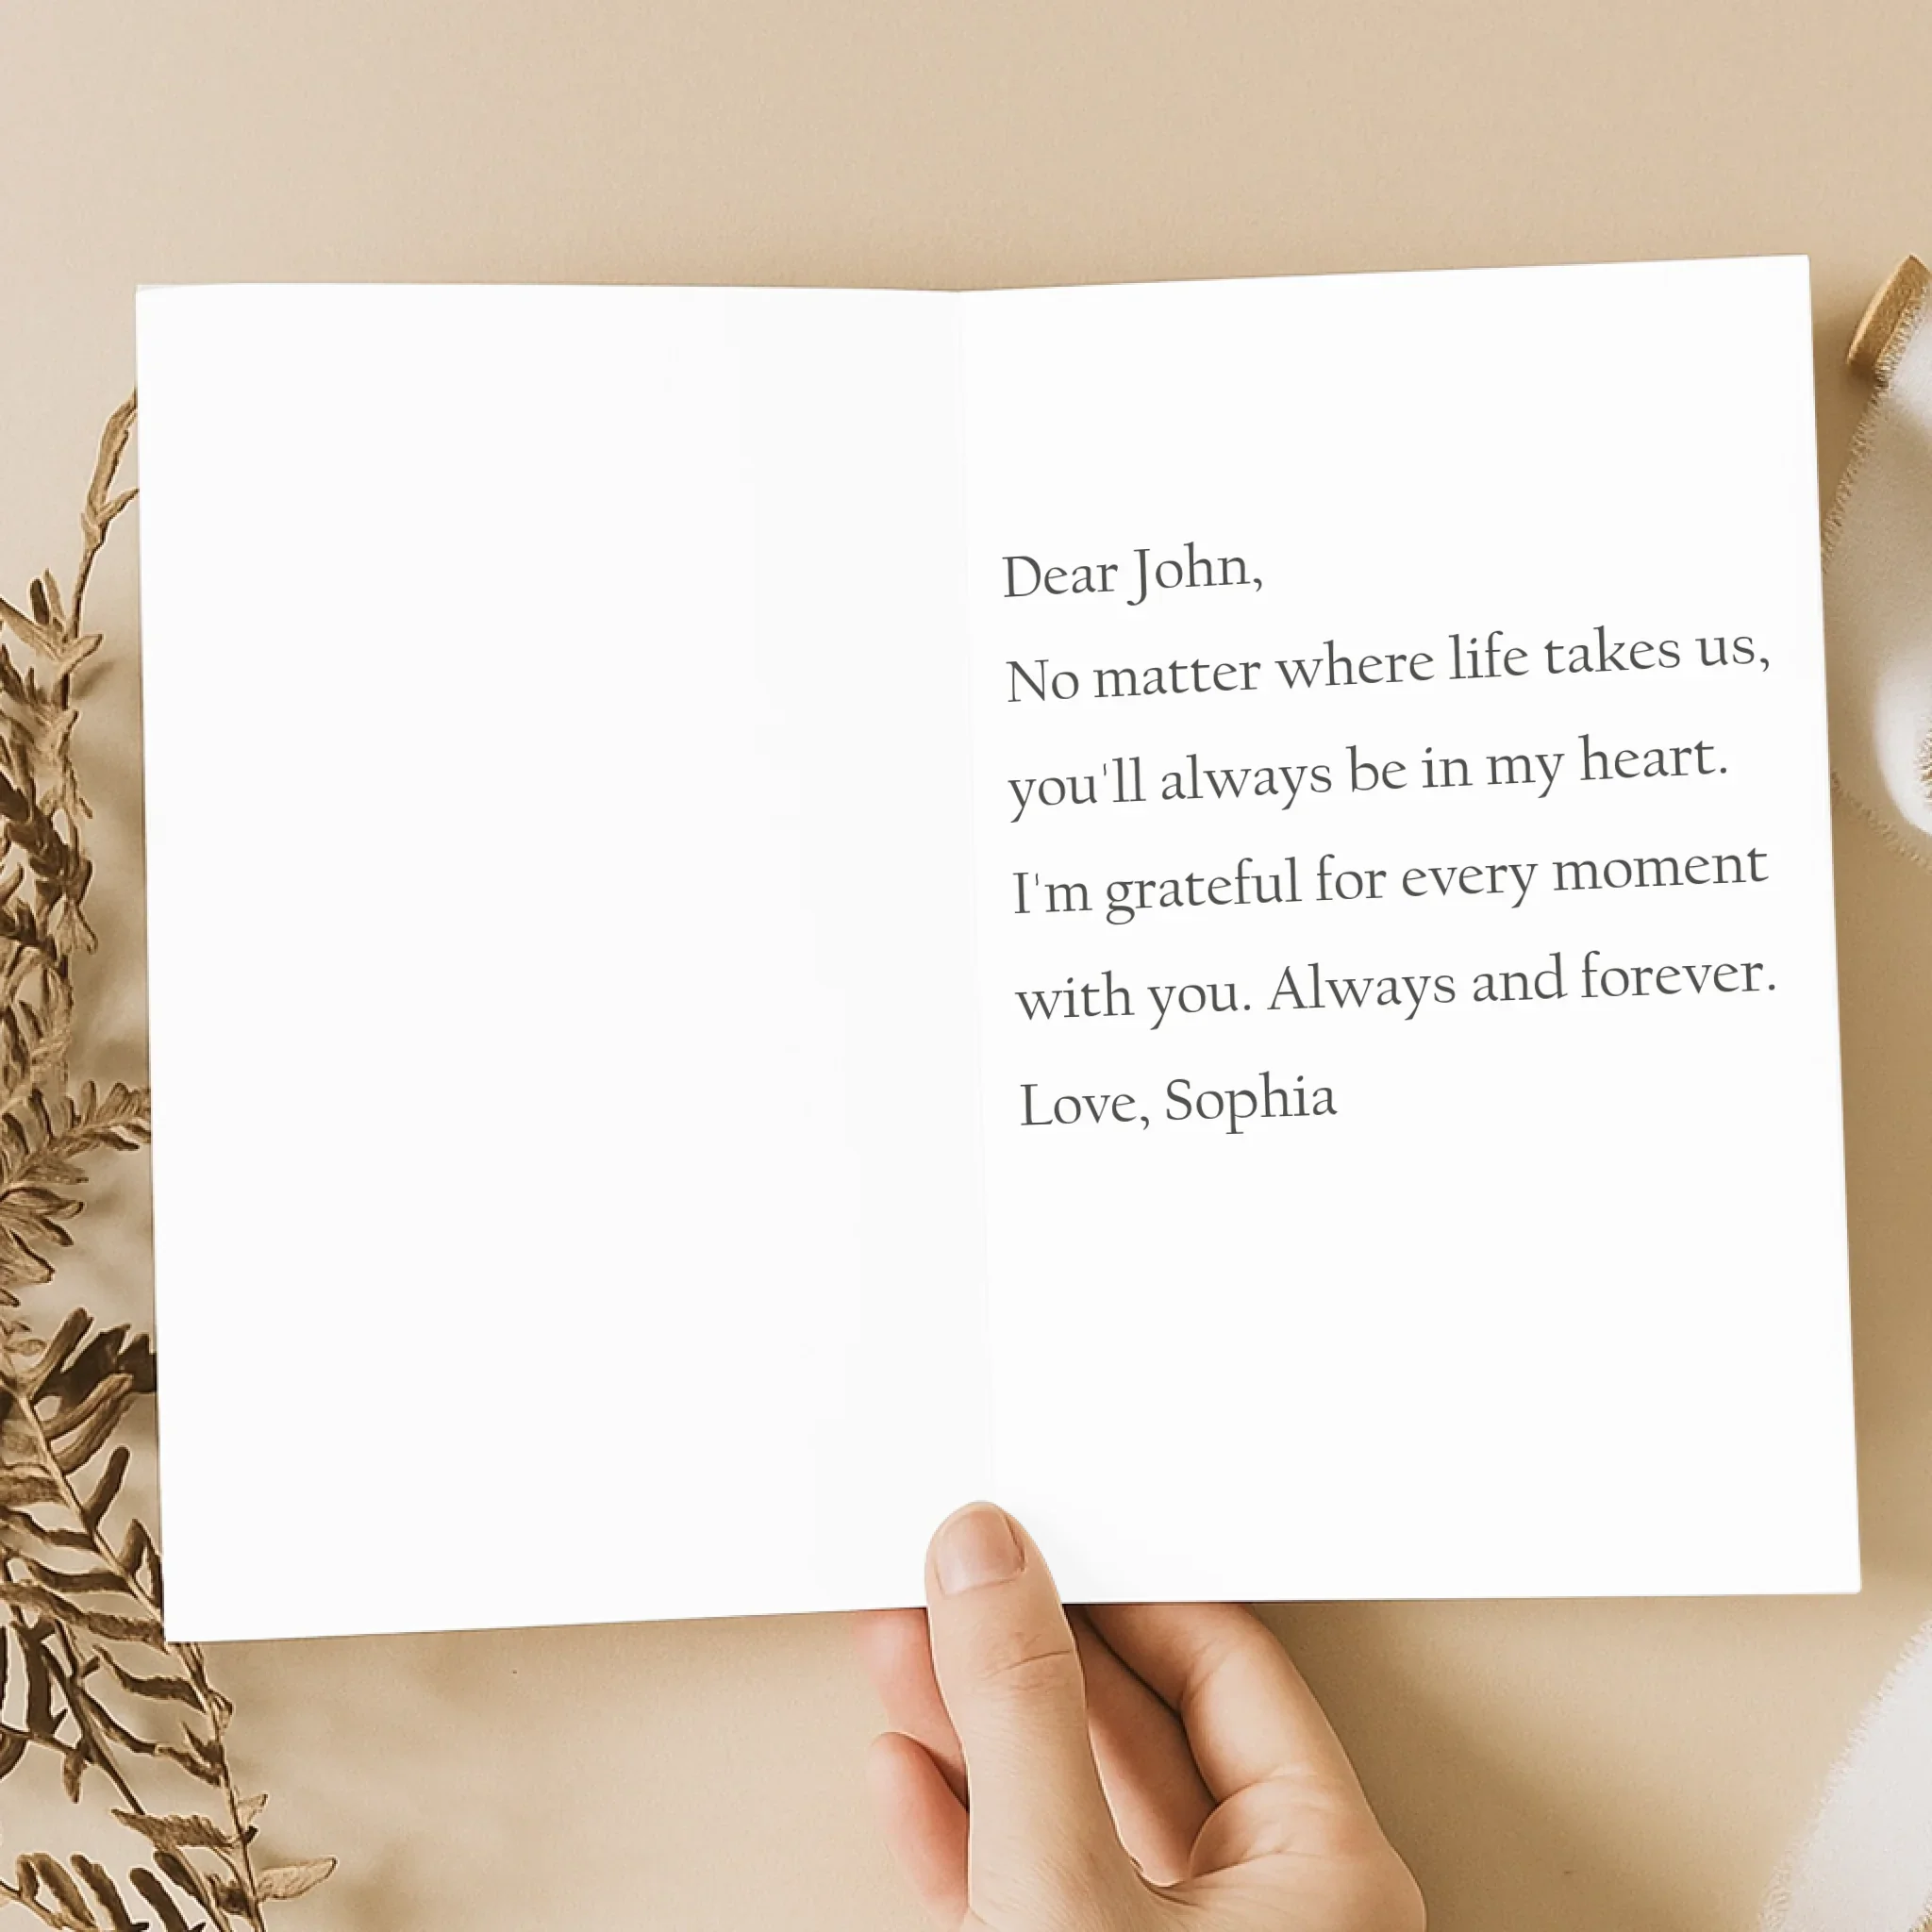 Dear John,
No matter where life takes us,
you'll always be in my heart.
I'm grateful for every moment
with you. Always and forever.
Love, Sophia